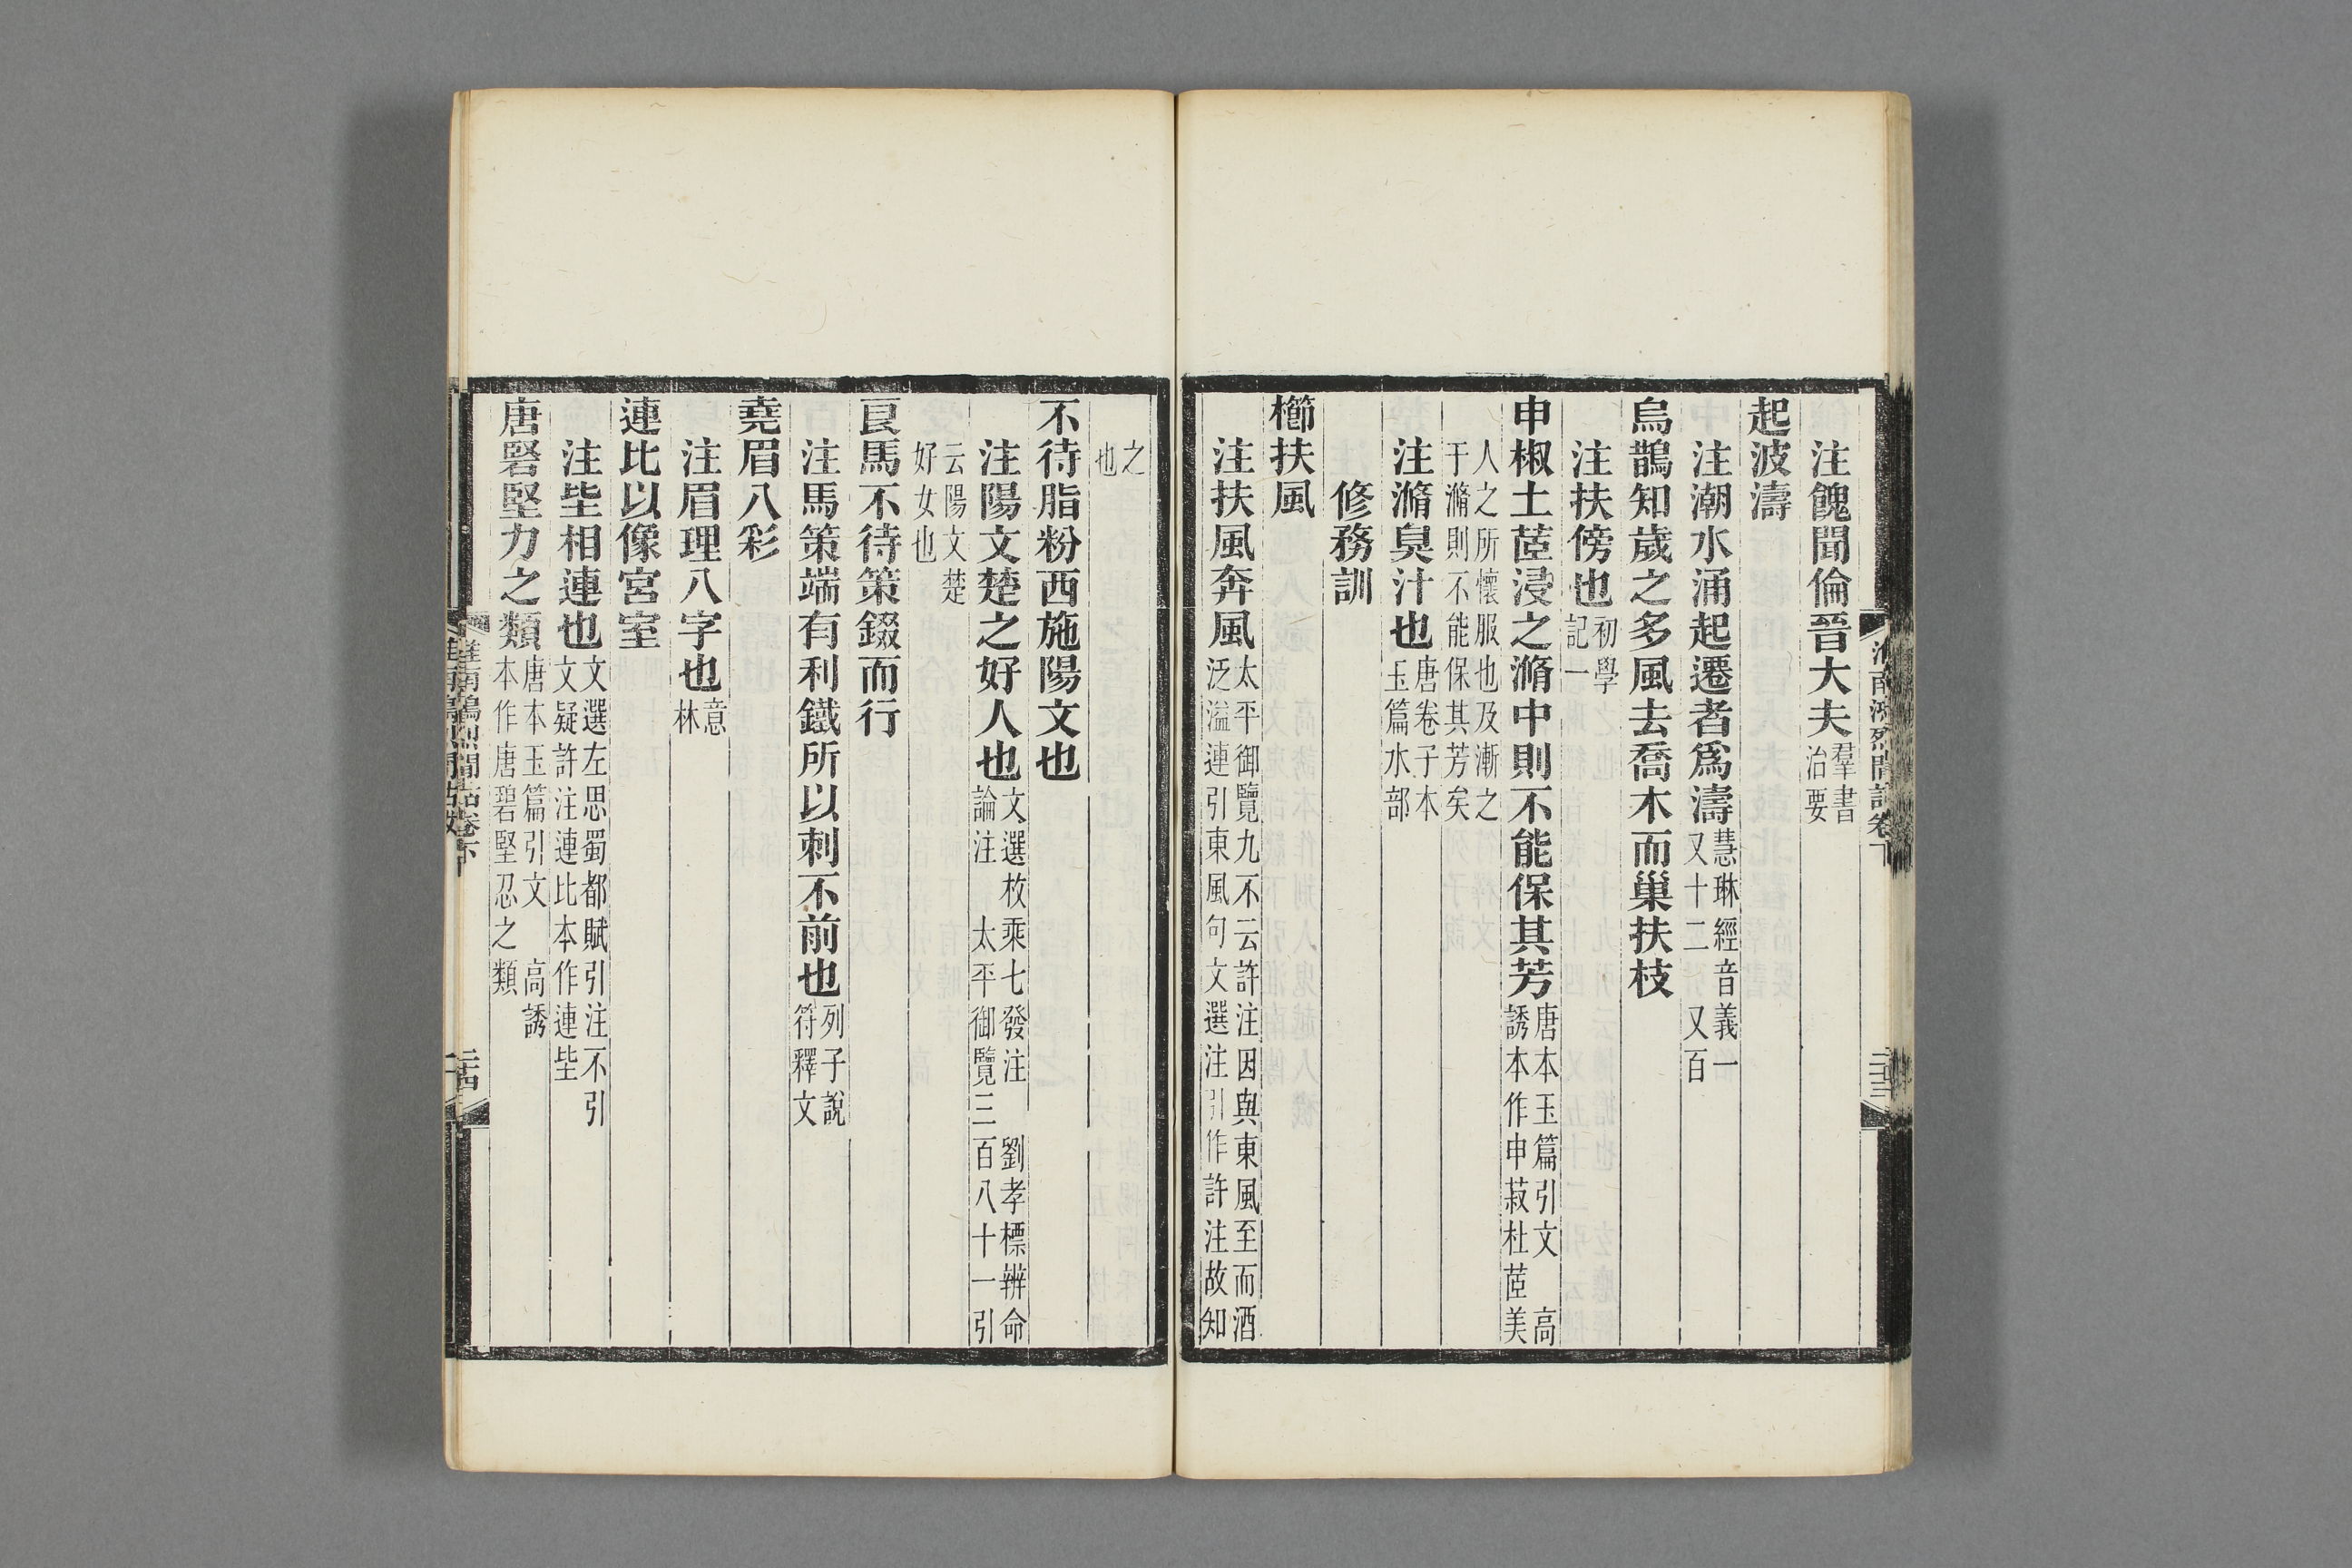 注餽聞倫晉大夫羣書治要
起波濤
注潮水涌起遷者爲濤慧琳經音義一又十二 又百
烏鵲知歲之多風去喬木而巢扶枝
注扶傍也初學記一
申椒土茝浸之滫中則不能保其芳唐本玉篇引文 高誘本作申菽杜茝美
人之所懷服也及漸之于滫則不能保其芳矣
注滫臭汁也唐卷子本玉篇水部
修務訓
櫛扶風
注扶風奔風太平御覽九不云許注因與東風至而酒泛溢連引東風句文選注引作許注故知
之也
不待脂粉西施陽文也
注陽文楚之好人也文選枚乘七發注 劉孝標辨命論注 太平御覽三百八十一引
云陽文楚好女也
良馬不待策錣而行
注馬策端有利鐵所以刺不前也列子說符釋文
堯眉八彩
注眉理八字也意林
連比以像宮室
注坒相連也文選左思蜀都賦引注不引文疑許注連比本作連坒
唐硻堅力之類唐本玉篇引文 高誘本作唐碧堅忍之類
淮南鴻烈閒詁卷下
二十四